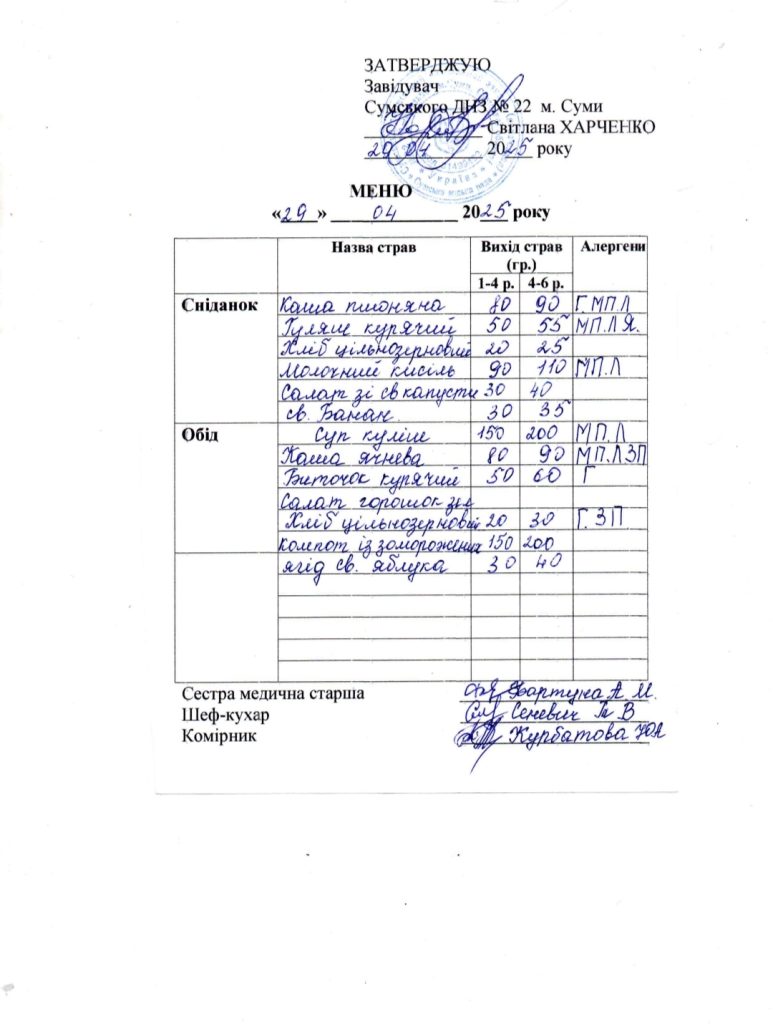 ЗАТВЕРДЖУЮ
Завідувач
Сумського ДНЗ № 22 м. Суми
Світлана ХАРЧЕНКО
29 04 2025 року
МЕНЮ
«29» 04 2025 року
Назва страв Вихід страв (гр.) Алергени
1-4 р. 4-6 р.
Сніданок Каша пшоняна 80 90 Г. МП.Л
Гуляш курячий 50 55 МП.Л Я.
Хліб цільнозерновий 20 25
Молочний кисіль 90 110 МП.Л
Салат зі св капусти 30 40
св. Банан 30 35
Обід Суп куліш 150 200 МП.Л
Каша ячнева 80 90 МП.Л ЗП
Биточок курячий 50 60 Г
Салат горошок зел
Хліб цільнозерновий 20 30 Г. ЗП
компот із заморожених 150 200
ягід св. яблука 30 40
Сестра медична старша Фартуна А. М.
Шеф-кухар Сеневич Т В
Комірник Курбатова Ю А